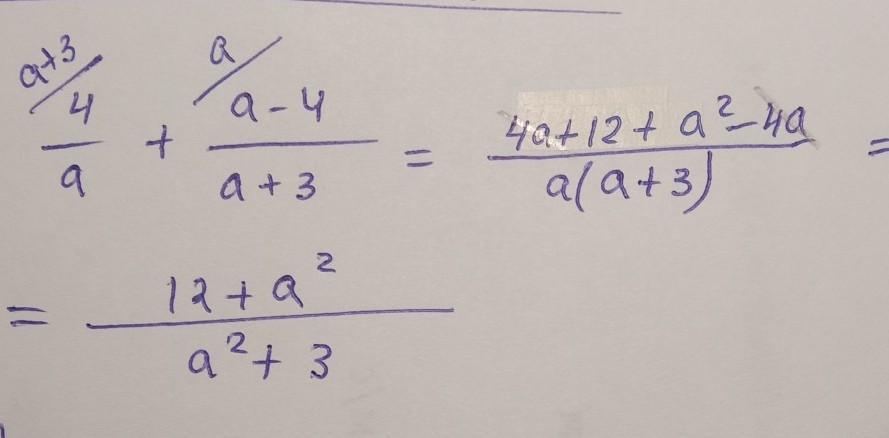 a+3/ 4/a + a/ (a-4)/(a+3) = (4a+12+a²-4a)/(a(a+3)) =
= (12+a²)/(a²+3)